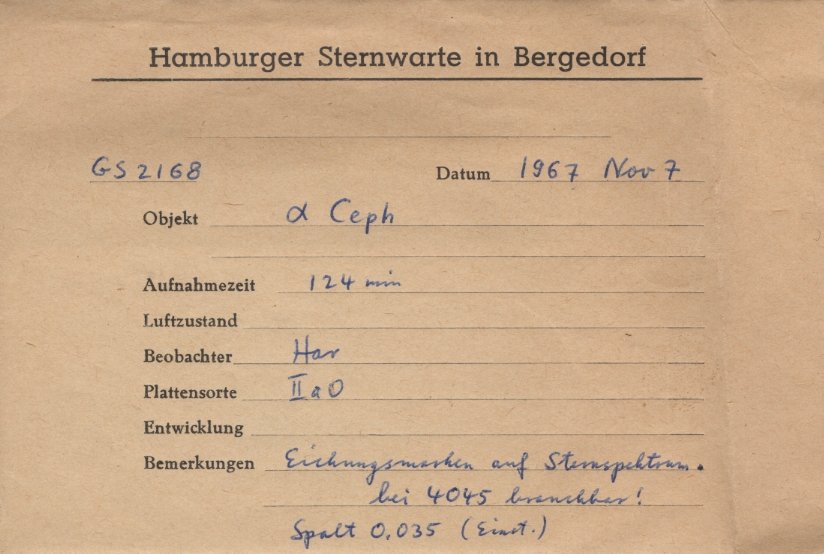 Hamburger Sternwarte in Bergedorf
GS 2168 Datum 1967 Nov 7
Objekt α Ceph
Aufnahmezeit 124 min
Luftzustand
Beobachter Har
Plattensorte IIaO
Entwicklung
Bemerkungen Eichungsmarken auf Sternspektrum.
bei 4045 brauchbar!
Spalt 0,035 (Einst.)